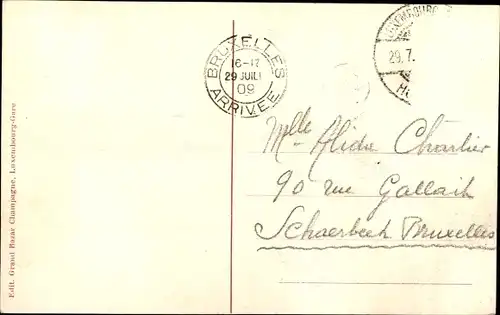 BRUXELLES
16-17
29 JUIL
09
ARRIVEE
LUXEMBOURG
29.7.
Mlle Alida Charlier
90 rue Gallait
Schaerbeek Bruxelles
Edit. Grand Bazar Champagne, Luxembourg-Gare